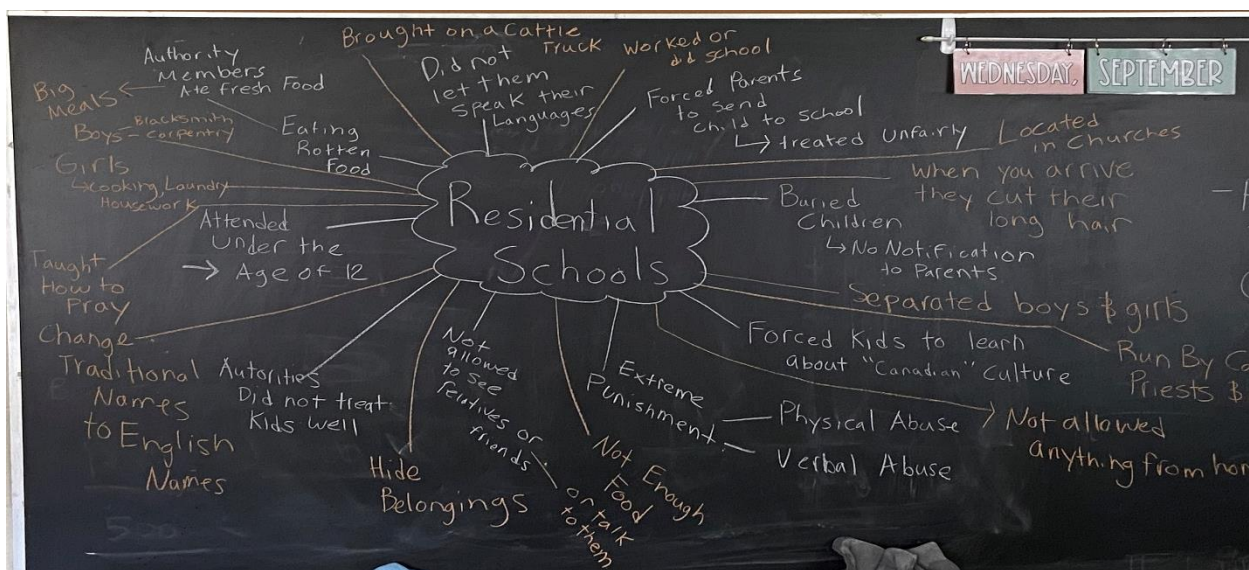 Residential
Schools
Brought on a Cattle
Truck
Did not
let them
speak their
Languages
Worked or
did school
Forced Parents
to send
child to school
↳ treated unfairly
WEDNESDAY,
SEPTEMBER
Located
in Churches
when you arrive
they cut their
long hair
Buried
Children
↳ No Notification
to Parents
Separated boys & girls
Run By
Priests &
Forced Kids to learn
about "Canadian" Culture
Not allowed
anything from
Extreme
Punishment
Physical Abuse
Verbal Abuse
Not Enough
Food
Not
allowed
to see
relatives or
friends
or talk
to them
Hide
Belongings
Autorities
Did not treat
Kids well
Change
Traditional
Names
to English
Names
Attended
Under the
→ Age of 12
Taught
How to
Pray
Girls
↳ Cooking, Laundry
Housework
Boys - Blacksmith
- Carpentry
Eating
Rotten
Food
Authority
Members
Ate fresh Food
Big
Meals